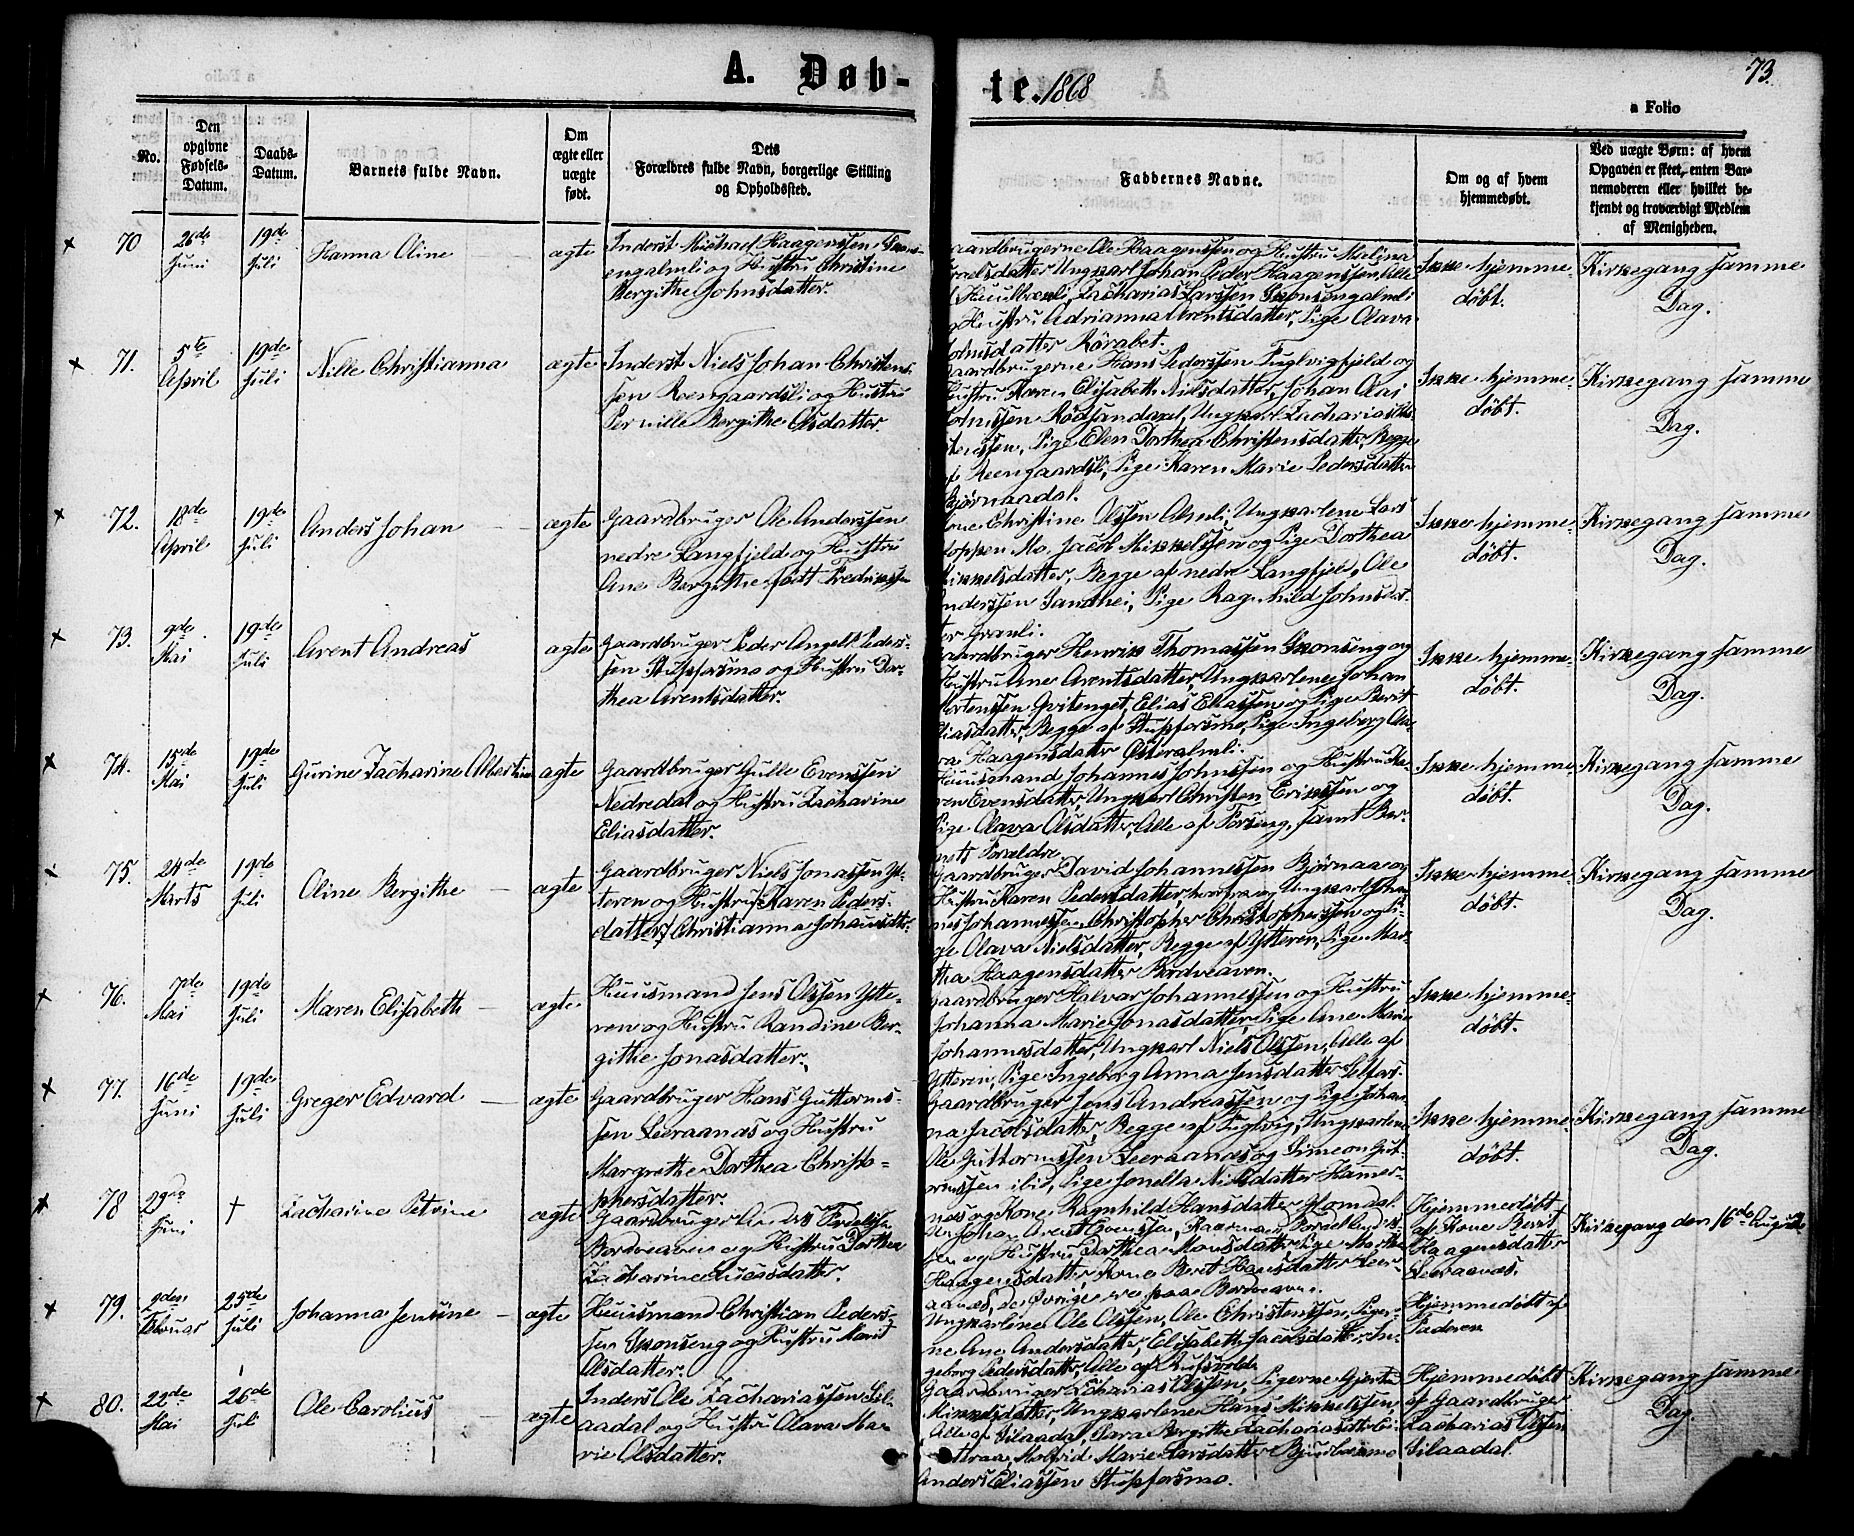 A. Døb-
te. 1868
73.
a Folio
No.
Den opgivne Fødsels-Datum.
Daabs-Datum.
Barnets fulde Navn.
Om ægte eller uægte født.
Dets Forældres fulde Navn, borgerlige Stilling og Opholdssted.
Faddernes Navne.
Om og af hvem hjemmedøbt.
Ved uægte Børn: af hvem Opgaven er skeet, enten Barnemoderen eller hvilket bekjendt og troværdigt Medlem af Menigheden.
70 26de Juni 19de Juli Hanna Oline ægte
Inderst Michael Haagenssen
engalmli og Hustru Christine
Bergithe Johnsdatter.
aardbrugerne Ole Haagenssen og Hustru Malina
raelsdatter, Ungkarl Johan Peder Haagenssen, alle
Zacharias Larssen Skonsengalmli
g Hustru Adrianna Arentsdatter, Pige Olava
ohnsdatter Rørabet.
Ikke hjemme-
døbt.
Kirkegang samme
Dag.
71. 5te April 19de Juli Nille Christianna ægte
Inderst Niels Johan Christens-
sen Reengaardsli og Hustru
Pernille Bergithe Olsdatter.
aardbrugerne Hans Pederssen Fuglvigfjeld og
Hustru Karen Elisabeth Nielsdatter, Johan Olai
ohnssen Rødsandaxel, Ungkarl Zacharias Chri
stenssen, Pige Elen Dorthea Christensdatter, Begge
af Reengaardsli, Pige Karen Marie Pedersdatter
Bjørnaadal.
Ikke hjemme-
døbt.
Kirkegang samme
Dag.
72. 18de April 19de Juli Anders Johan ægte
Gaardbruger Ole Anderssen
nedre Langfjeld og Hustru
Ane Bergithe født Fredrikssen
one Christine Olssen Almli, Ungkarlene Lars
oppen Mo, Jacob Mikkelssen og Pige Dorthea
ikkelsdatter, Begge af nedre Langfjeld, Ole
nderssen Sandhei, Pige Ragnhild Johnsdat-
ter Granli.
Ikke hjemme-
døbt.
Kirkegang samme
Dag.
73. 9de Mai 19de Juli Arent Andreas ægte
Gaardbruger Peder Angell Peders-
sen Stupforsmo og Hustru Dor-
thea Arentsdatter.
aardbruger Henrik Thomassen Skonseng og
Hustru Ane Arentsdatter, Ungkarlene Johan
ortenssen Qvitenget, Elias Eliassen og Pige Berit
liasdatter, Begge af Stupforsmo, Pige Ingeborg Ola-
va Haagensdatter Østeralmli.
Ikke hjemme-
døbt.
Kirkegang samme
Dag.
74. 15de Mai 19de Juli Gurine Zacharine Albertine ægte
Gaardbruger Gulle Evenssen
Nedredal og Hustru Zacharine
Eliasdatter.
Huusmand Johannes Johnssen og Hustru Ka-
ren Evensdatter, Ungkarl Christen Erikssen og
Pige Olava Olsdatter, Alle af Forseng, samt Bar-
nets Forældre
Ikke hjemme-
døbt.
Kirkegang samme
Dag.
75. 24de Marts 19de Juli Oline Bergithe ægte
Gaardbruger Niels Jonassen Yt-
teren og Hustru Karen Peders-
datter, Christianna Johansdtr.
Gaardbruger David Johannessen Bjørnaa og
Hustru Karen Pedersdatter, Ungkarl Johan
nes Johannessen, Christopher Christopherssen og Pi-
ge Olava Nielsdatter, Begge af Ytteren, Pige Mar-
tha Haagensdatter Bordveaven.
Ikke hjemme-
døbt.
Kirkegang samme
Dag.
76. 7de Mai 19de Juli Maren Elisabeth ægte
Huusmand Jens Olssen Ytte-
ren og Hustru Randine Ber-
githe Jonasdatter.
Gaardbruger Halvar Johannessen og Hustru
Johanna Marie Jonasdatter, Pige Ane Marie
Johannesdatter, Ungkarl Niels Olssen, Alle af
Ytteren, Pige Ingeborg Anna Jensdatter Selfors.
Ikke hjemme-
døbt.
77. 16de Juni 19de Juli Greger Edvard ægte
Gaardbruger Hans Guttorms-
sen Leeraanæs og Hustru
Margrethe Dorthea Christo-
phersdatter.
Gaardbruger Jens Andreassen og Pige Johan-
na Jacobsdatter, Begge af Fuglvig, Ungkarlene
Ole Guttormssen Leeraanæs og Simeon Gut-
ormssen ibid, Pige Jonella Nielsdatter Hamer-
næs og Kone Ragnhild Hansdatter
Ikke hjemme-
døbt.
Kirkegang samme
Dag.
78 29de Juni † Zacharine Petrine ægte
Gaardbruger Anders
Bordveaven og Hustru Dorthea
Zacharine Lucasdatter.
Johan Arent Evenssen,
og Hustru Dorthea Monsdatter, Pige Martha
Haagensdatter, Kone Beret Hansdatter Leer-
aanæs, de Øvrige ere paa Bordveaven.
Hjemmedøbt
af Kone Berit
Haagensdatter
Leeraanæs.
Kirkegang den 16de August
79. 2den Februar 25de Juli Johanna Jensine ægte
Huusmand Christian Peders-
sen Skonseng og Hustru Marit
Olsdatter.
Ungkarlene Ole Olssen, Ole Christenssen, Piger-
ne Ane Andersdatter, Elisabeth Jacobsdatter, In-
geborg Pedersdatter, Alle af Rufsvolde
Hjemmedøbt af
Faderen
80. 22de Mai 26de Juli Ole Carolius ægte
Inderst Ole Zachariassen Sil-
aadal og Hustru Olava Ma-
rie Olsdatter.
Gaardbruger Zacharias Olssen, Pigerne Gjertrud
Mikkelsdatter, Ungkarlene Hans Mikkelssen,
Alle af Silaadal, Sara Bergithe Zachariasdtr
Molfrid Marie Larsdatter Bjurbækmo
Anders Eliassen Stupforsmo.
Hjemmedøbt
af Gaardbruger
Zacharias Olssen
Silaadal.
Kirkegang samme
Dag.